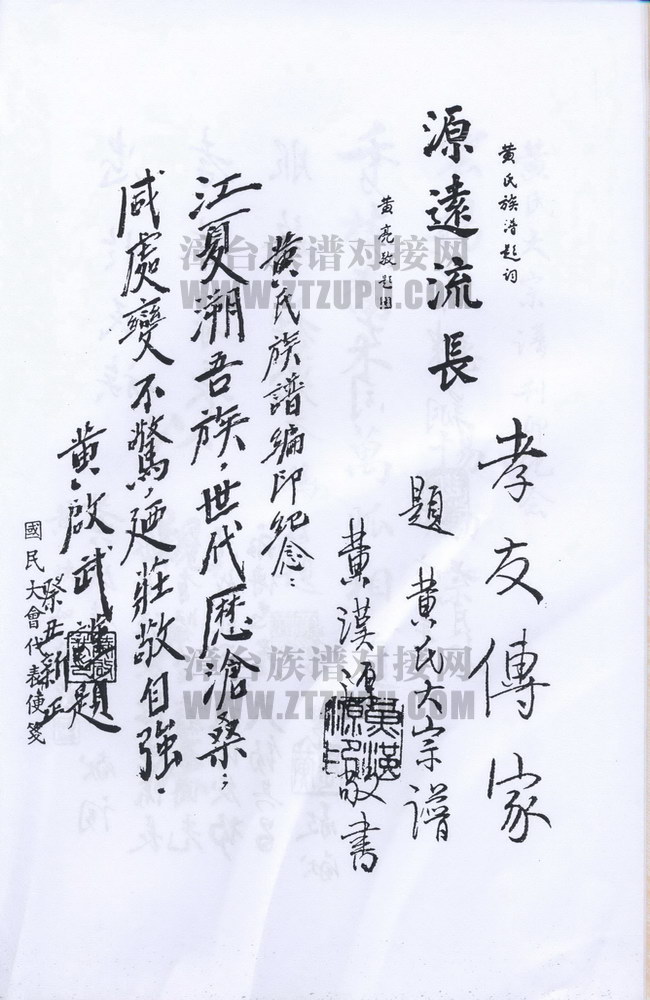 黃氏族譜題詞
源遠流長
黃亮敬題
孝友傳家
題黃氏大宗譜
黃漢源敬書
黃氏族譜編印紀念：
江夏溯吾族，世代歷滄桑；
咸處變不驚，廼莊敬自強。
黃啟武謹題
癸丑新正
國民大會代表便箋
漳台族谱对接网
WWW.ZTZUPU.COM
漳台族谱对接网
WWW.ZTZUPU.COM